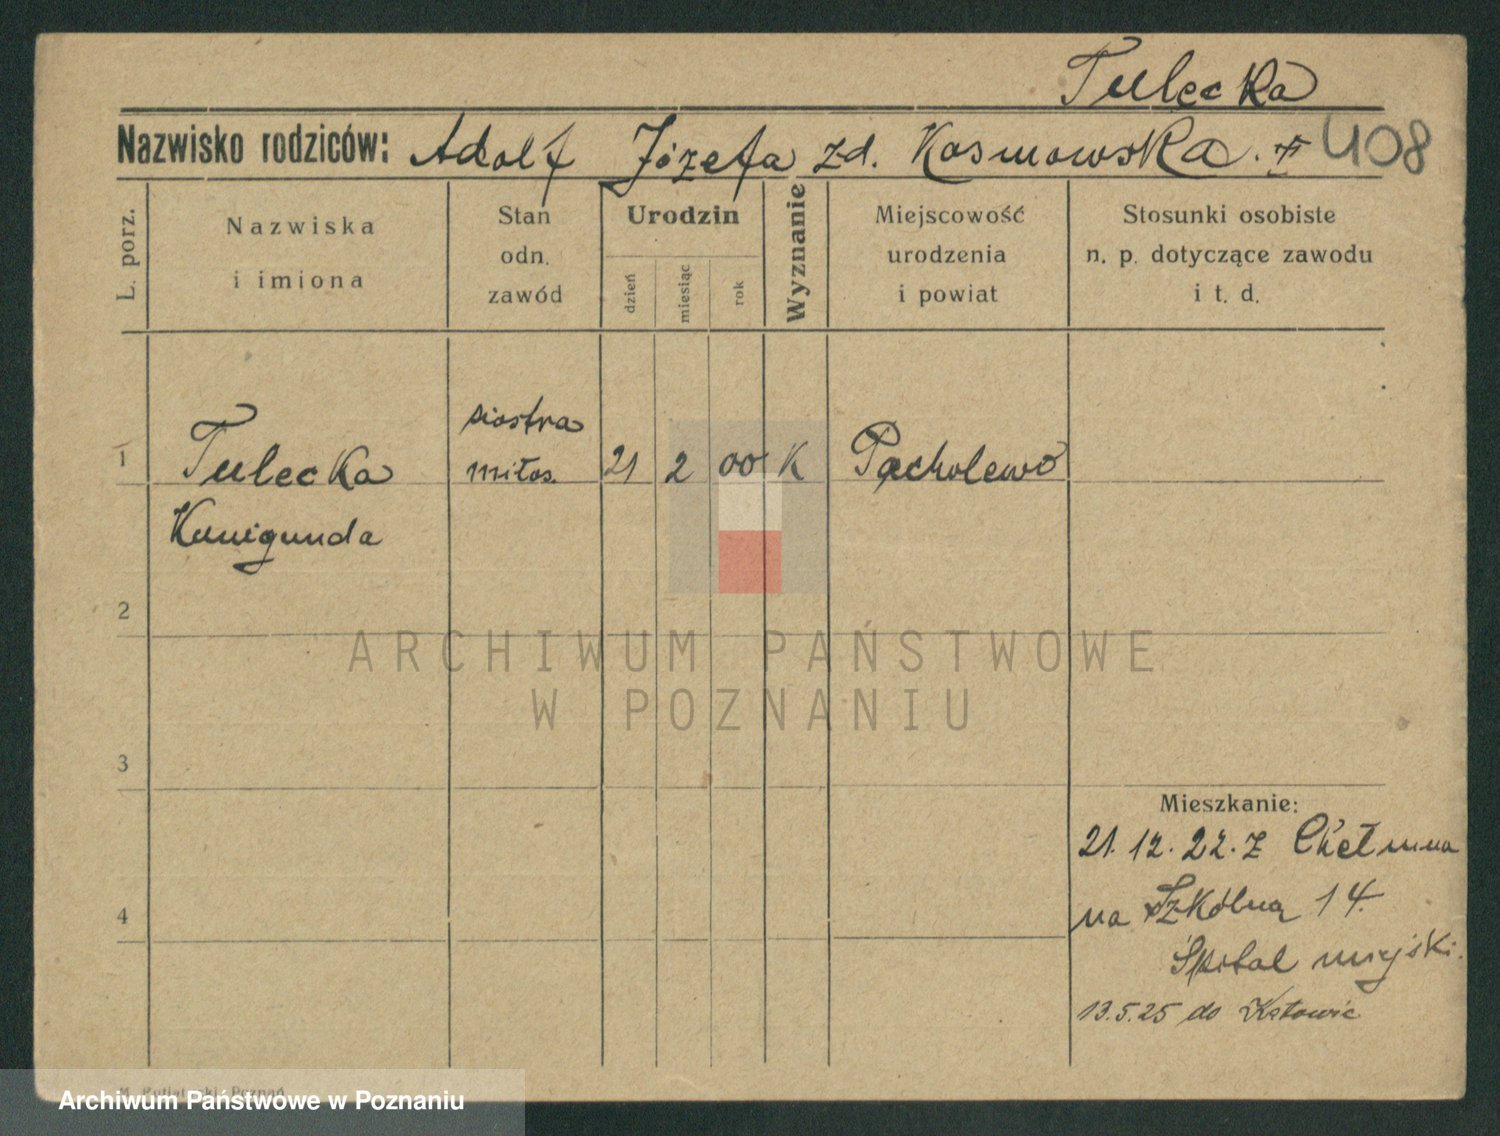 Tulecka
Nazwisko rodziców: Adolf Józefa zd. Kosmowska. 408
L. porz.
Nazwiska
i imiona
Stan
odn.
zawód
Urodzin
dzień
miesiąc
rok
Wyznanie
Miejscowość
urodzenia
i powiat
Stosunki osobiste
n. p. dotyczące zawodu
i t. d.
siostra
1 Tulecka miłos. 21 2 00 K Pacholewo
Kunigunda
2
ARCHIWUM PAŃSTWOWE
W POZNANIU
3
Mieszkanie:
21.12.22. z Chełmna
4 na Szkólną 14.
Śpital miejski.
13.5.25 do Katowic
Poznań
Archiwum Państwowe w Poznaniu